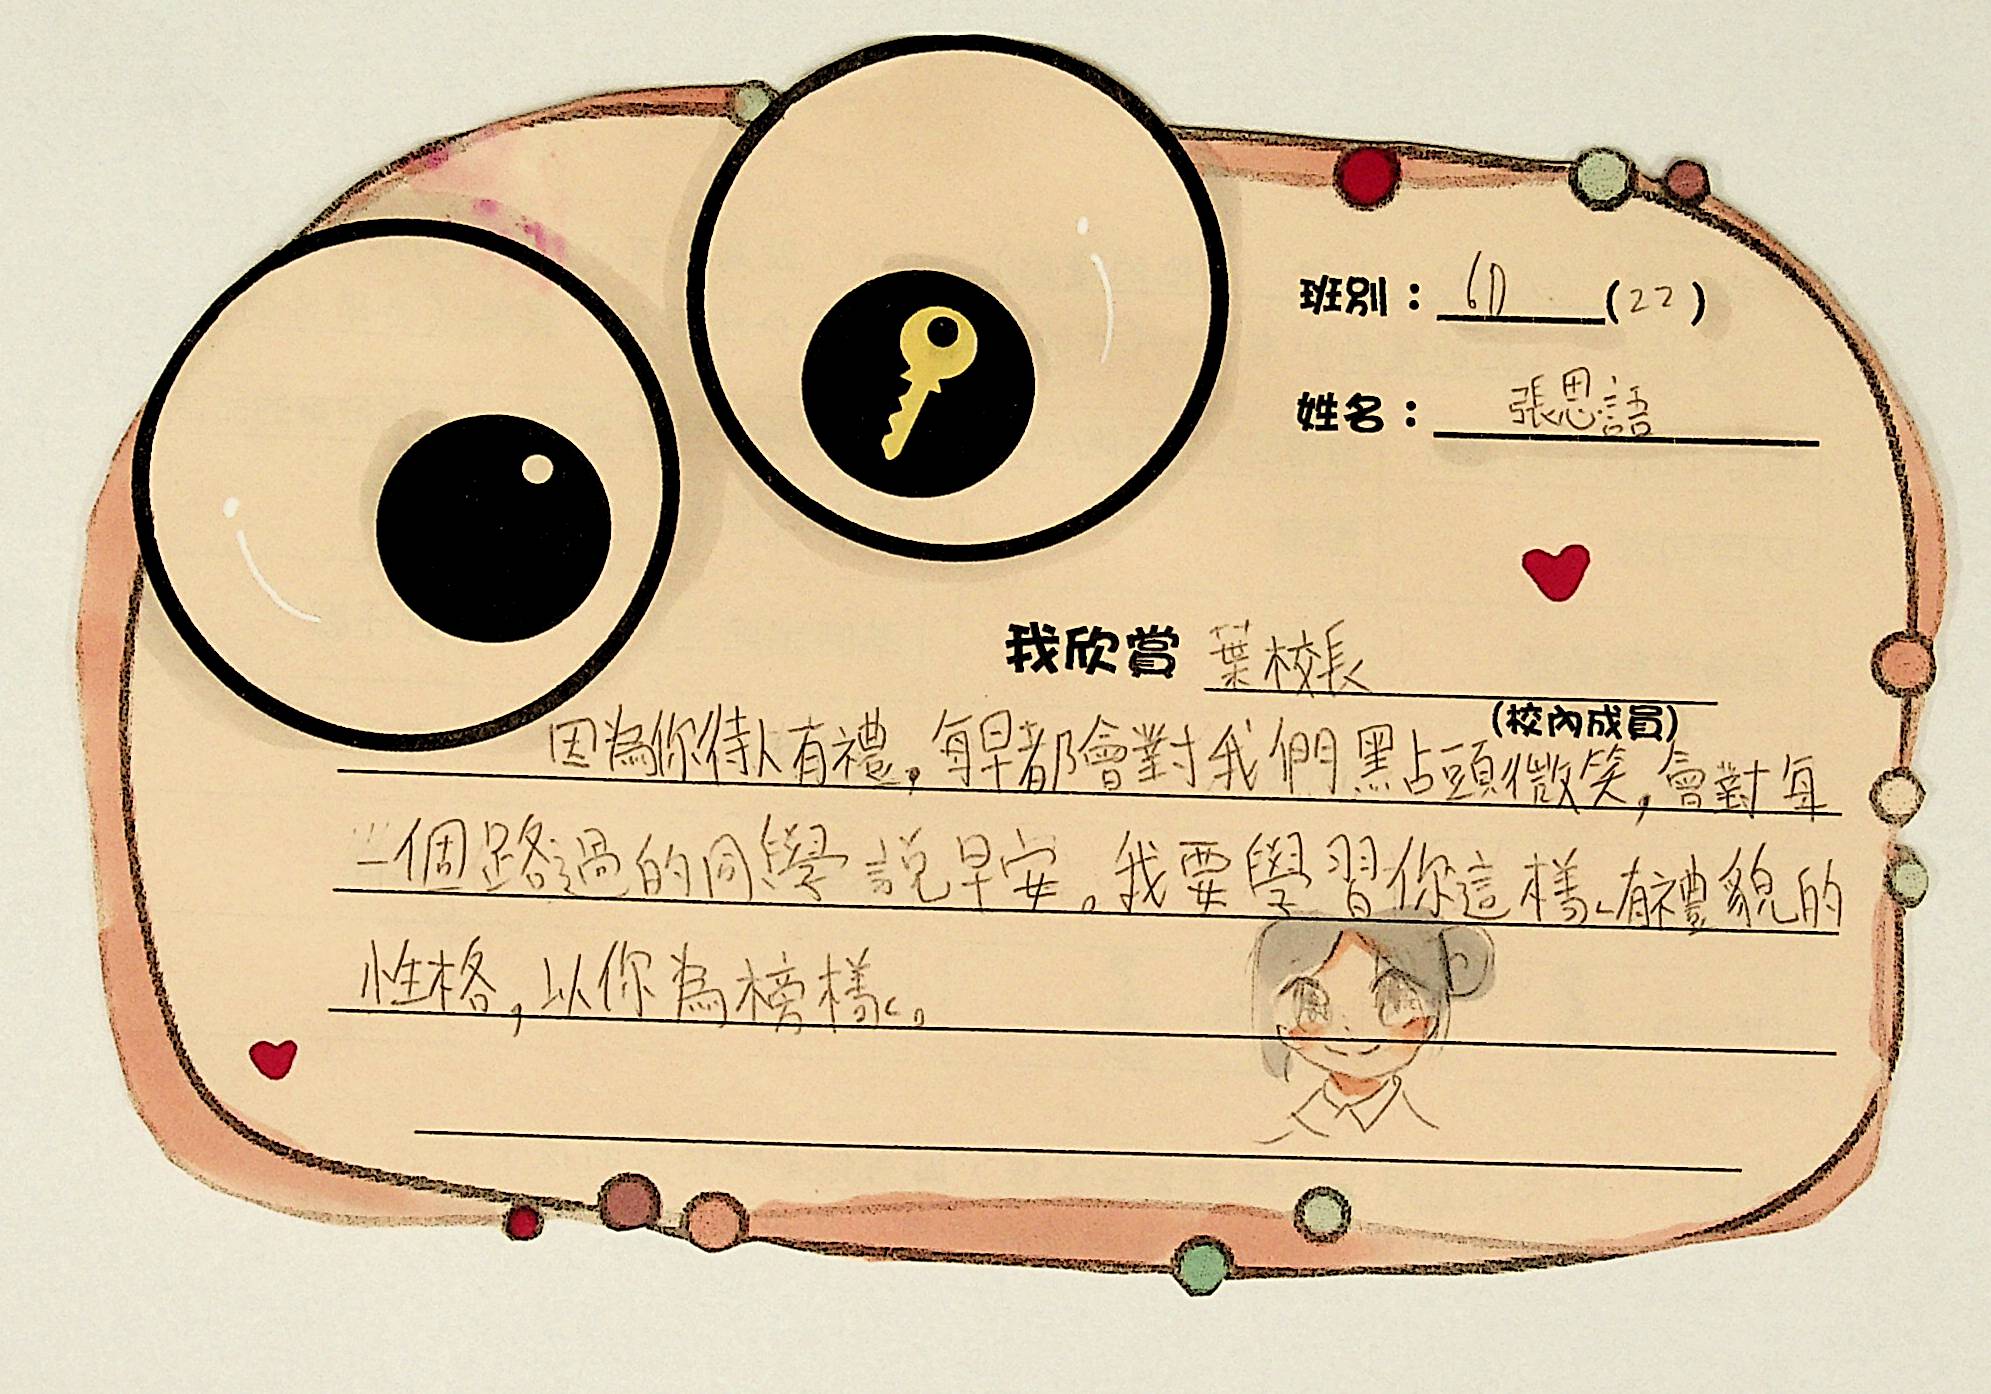 班別：6D(22)
姓名：張思語
我欣賞葉校長
(校內成員)
因為你待人有禮，每早都會對我們點頭微笑，會對每
一個路過的同學說早安。我要學習你這樣有禮貌的
性格，以你為榜樣。